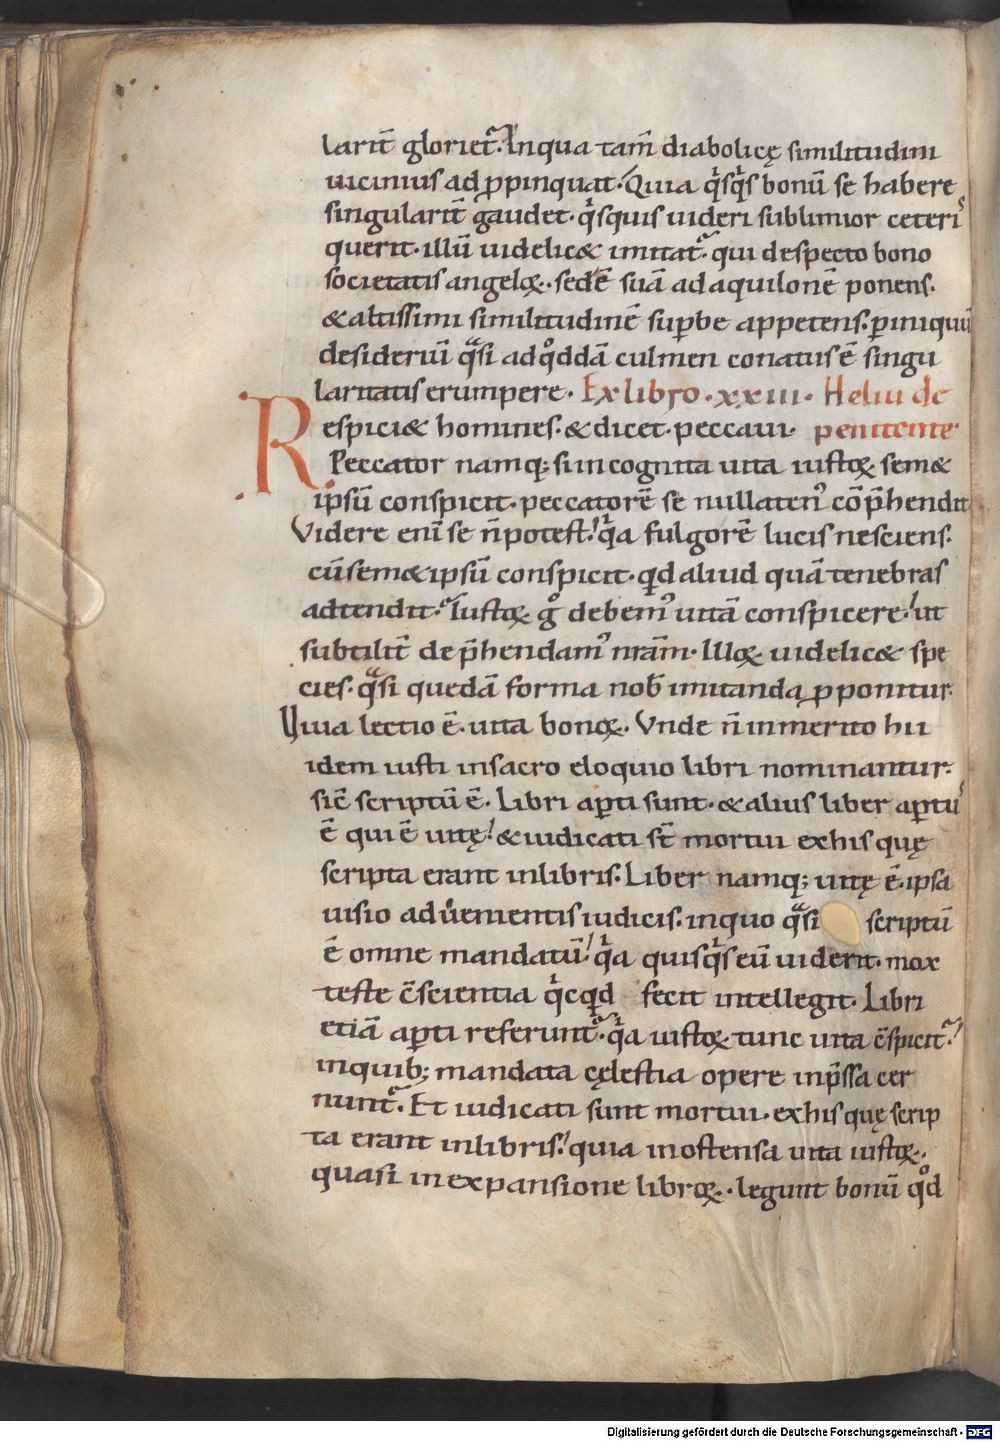 larit̄ gloriet᷑. In qua tam̄ diabolicę similitudini
uicinius ad ꝓpinquat. Quia q̇sq̇s bonū se habere
singularit̄ gaudet. q̇squis uideri sublimior ceteri᷒
querit. illū uidelic& imitat᷑. qui despecto bono
societatis angeloꝝ. sedē suā ad aquilonē ponens.
& altissimi similitudinē suꝑbe appetens. ꝑ iniquū
desideriū qͣsi ad qͦddā culmen conatus ē singu
laritatis erumpere. Ex libro .xxiii. Heliu de
Respici& homines. & dicet. peccaui. penitente
Peccator namq; si incognita uita iustoꝝ. sem&
ipsū conspicit. peccatorē se nullaten᷒ cōp̄hendit
Videre eni se n̄ potest. q̇a fulgorē lucis nesciens.
cū sem&ipsū conspicit. qͥd aliud quā tenebras
adtendit. Iustoꝝ gͦ debem᷒ uitā conspicere. ut
subtilit̄ dep̄hendam᷒ nr̄am. Illoꝝ uidelic& spe
cies. qͣsi quedā forma nob̄ imitanda ꝓponitur.
Viua lectio ē. uita bonoꝝ. Vnde n̄ inmerito hii
idem iusti in sacro eloquio libri nominantur.
sic̄ scriptū ē. Libri aꝑti sunt. & alius liber aꝑtu᷒
ē qui ē uitę. & iudicati st̄ mortui ex his quę
scripta erant in libris. Liber namq; uitę ē. ipsa
uisio aduenientis iudicis. in quo qͣsi scriptū
ē omne mandatū. q̇a quisq̇s eū uiderit. mox
teste c̄scientia q̇cqͥd fecit intellegit. Libri
etiā aꝑti referunt᷑. q̇a iustoꝝ. tunc uita c̄spicit᷑.
in quib; mandata cęlestia opere inp̄ssa cer
nunt᷑. Et iudicati sunt mortui. ex his quę scrip
ta erant in libris. quia in ostensa uita iustoꝝ.
quasi in expansione libroꝝ. legunt bonū qͦd
Digitalisierung gefördert durch die Deutsche Forschungsgemeinschaft - DFG